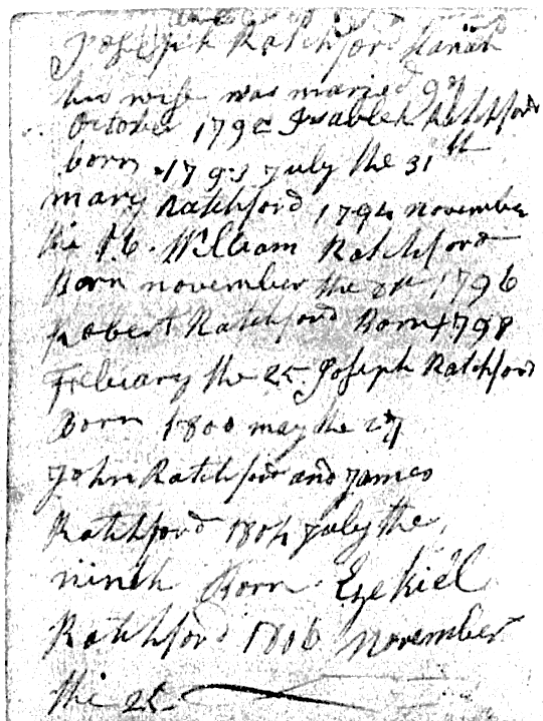 Joseph Ratchford
his wife was married 9th
October 1792 Isableh Ratchford
born 1793 July the 31th
mary Ratchford 1794 november
the William Ratchford
Born november the 1796
Robert Ratchford Born 1798
Febuary the 25 Joseph Ratchford
Born 1800 may the 27
John Ratchford and James
Ratchford 1804 July the
ninth Born Ezekiel
Ratchford 1806 November
the 25